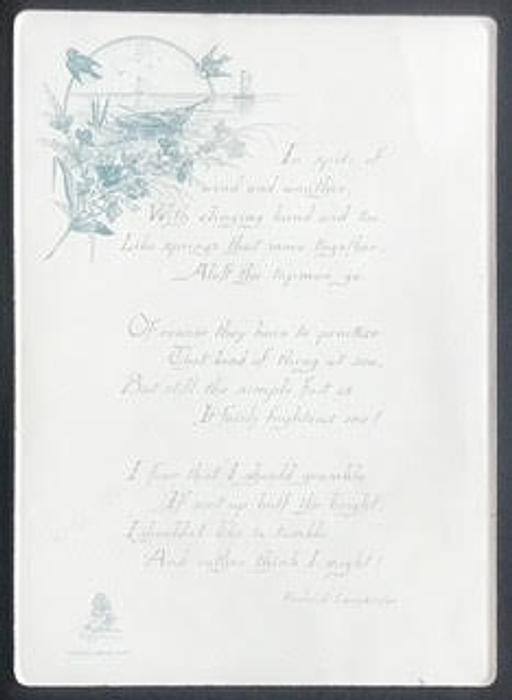 In spite of
wind and weather,
With clinging hand and toe
Like springs that move together,
Aloft the topmen go.
Of course they have to practise
That kind of thing at sea,
But still the simple fact is
It fairly frightens me!
I fear that I should grumble
If sent up half the height.
I shouldn't like to tumble
And rather think I might!
Frederick